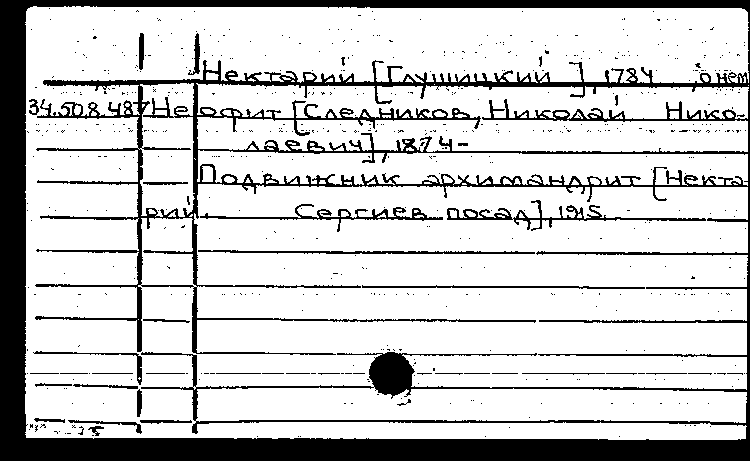 Нектарий [Глушицкий], 1784 , о нем
34.508.487 Неофит [Следников, Николай Нико-
лаевич], 1874-
Подвижник архимандрит [Некта-
рий. Сергиев посад], 1915.